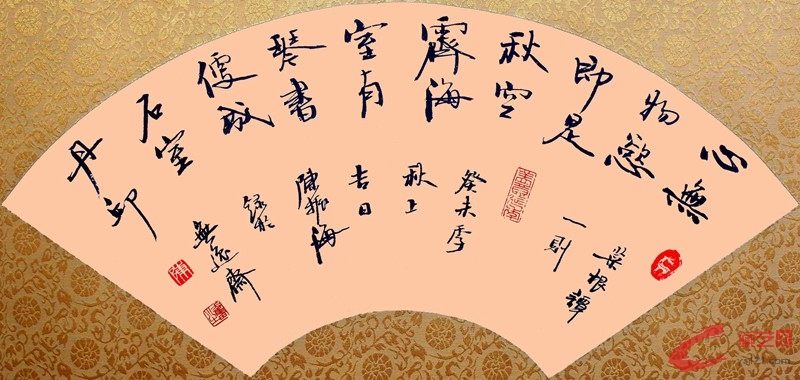 心無
物慾
即是
秋空
霽海
室有
琴書
便成
石室
丹邱
菜根譚
一則
癸未季
秋上
吉日
陳振海
錄於
無逸齋